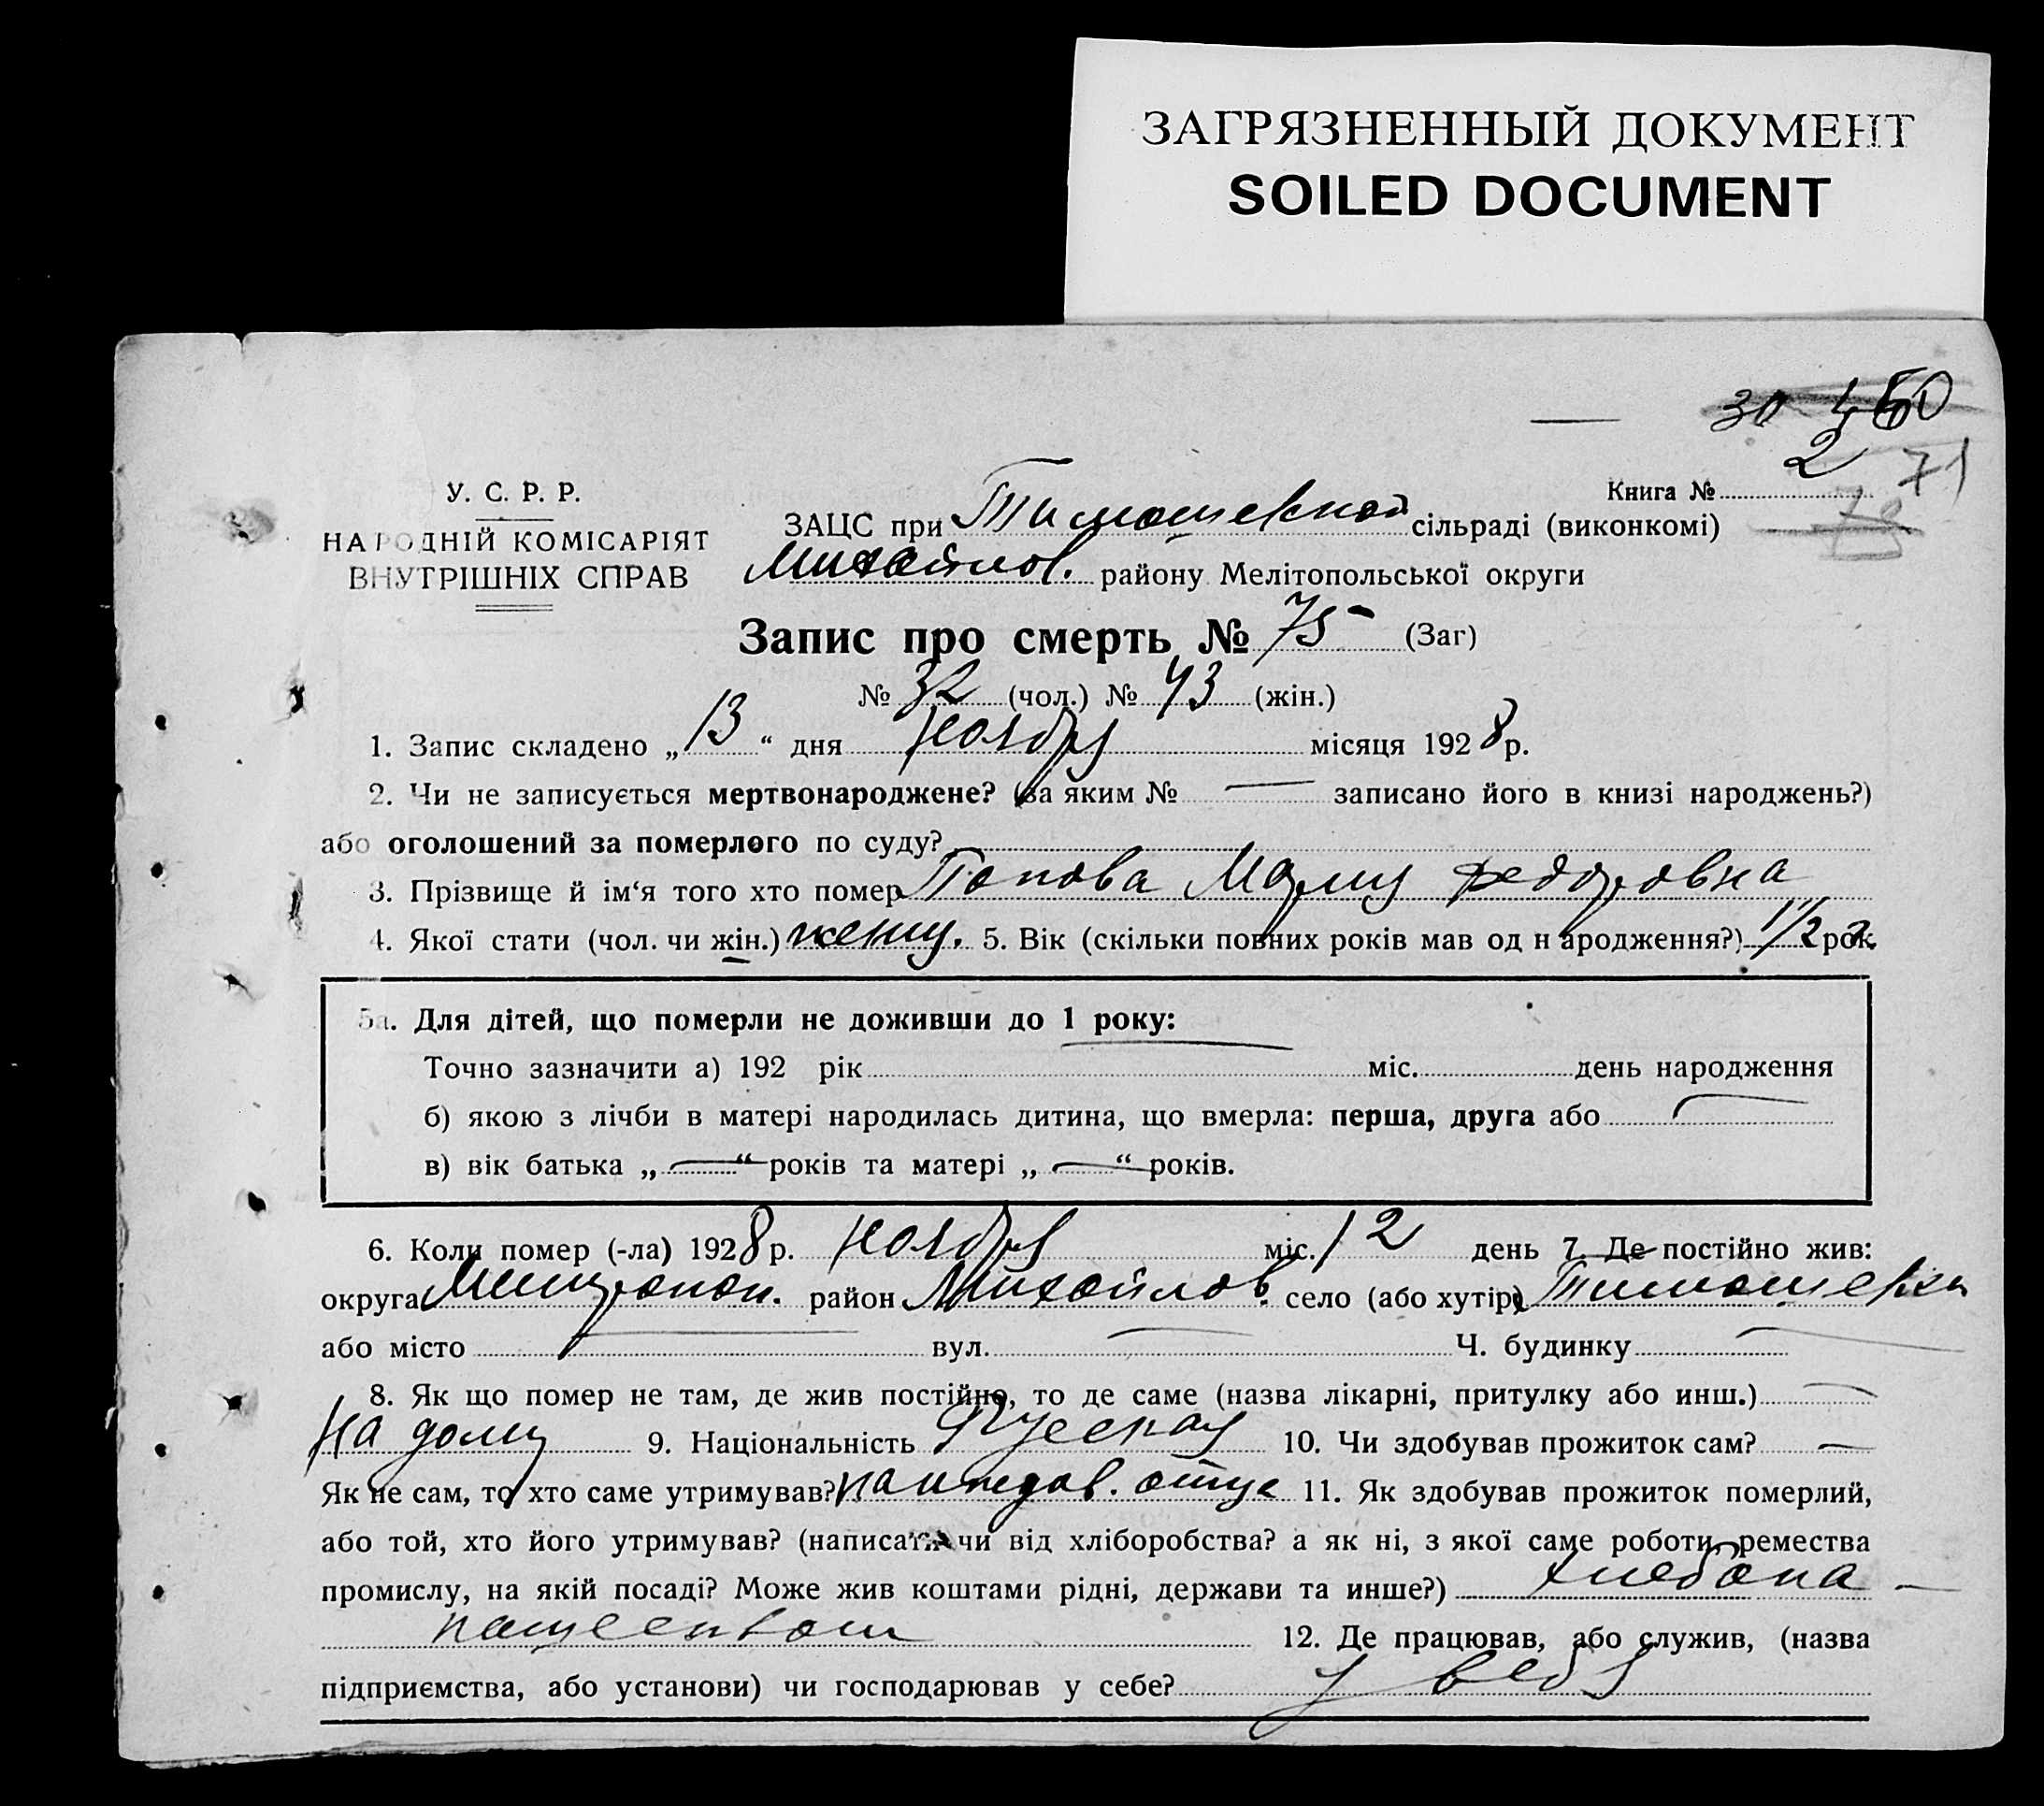 ЗАГРЯЗНЕННЫЙ ДОКУМЕНТ
SOILED DOCUMENT
30
Книга № 2 71
У. С. Р. Р.
НАРОДНІЙ КОМІСАРІЯТ
ВНУТРІШНІХ СПРАВ
ЗАЦС при Тимошевской сільраді (виконкомі)
Михайлов. району Мелітопольської округи
Запис про смерть № 75 (Заг)
№ 32 (чол.) № 43 (жін.)
1. Запис складено „13“ дня ноября місяця 1928 р.
2. Чи не записується мертвонароджене? (за яким № — записано його в книзі народжень?)
або оголошений за померлого по суду?
3. Прізвище й ім‘я того хто помер Попова Мария Федоровна
4. Якої стати (чол. чи жін.) женщ. 5. Вік (скільки повних років мав од н ародження?) 1 1/2 рок
5а. Для дітей, що померли не доживши до 1 року:
Точно зазначити а) 192 рік міс. день народження
б) якою з лічби в матері народилась дитина, що вмерла: перша, друга або —
в) вік батька „—“ років та матері „—“ років.
6. Коли помер (-ла) 1928 р. ноября міс. 12 день 7. Де постійно жив:
округа район Михайлов. село (або хутір) Тимошевка
або місто — вул. — Ч. будинку —
8. Як що помер не там, де жив постійно, то де саме (назва лікарні, притулку або инш.) —
на дому 9. Національність Русская 10. Чи здобував прожиток сам? —
Як не сам, то хто саме утримував? на иждив. отца 11. Як здобував прожиток померлий,
або той, хто його утримував? (написати чи від хліборобства? а як ні, з якої саме роботи, ремества
промислу, на якій посаді? Може жив коштами рідні, держави та инше?) хлебопа—
шеством 12. Де працював, або служив, (назва
підприємства, або установи) чи господарював у себе? у себя